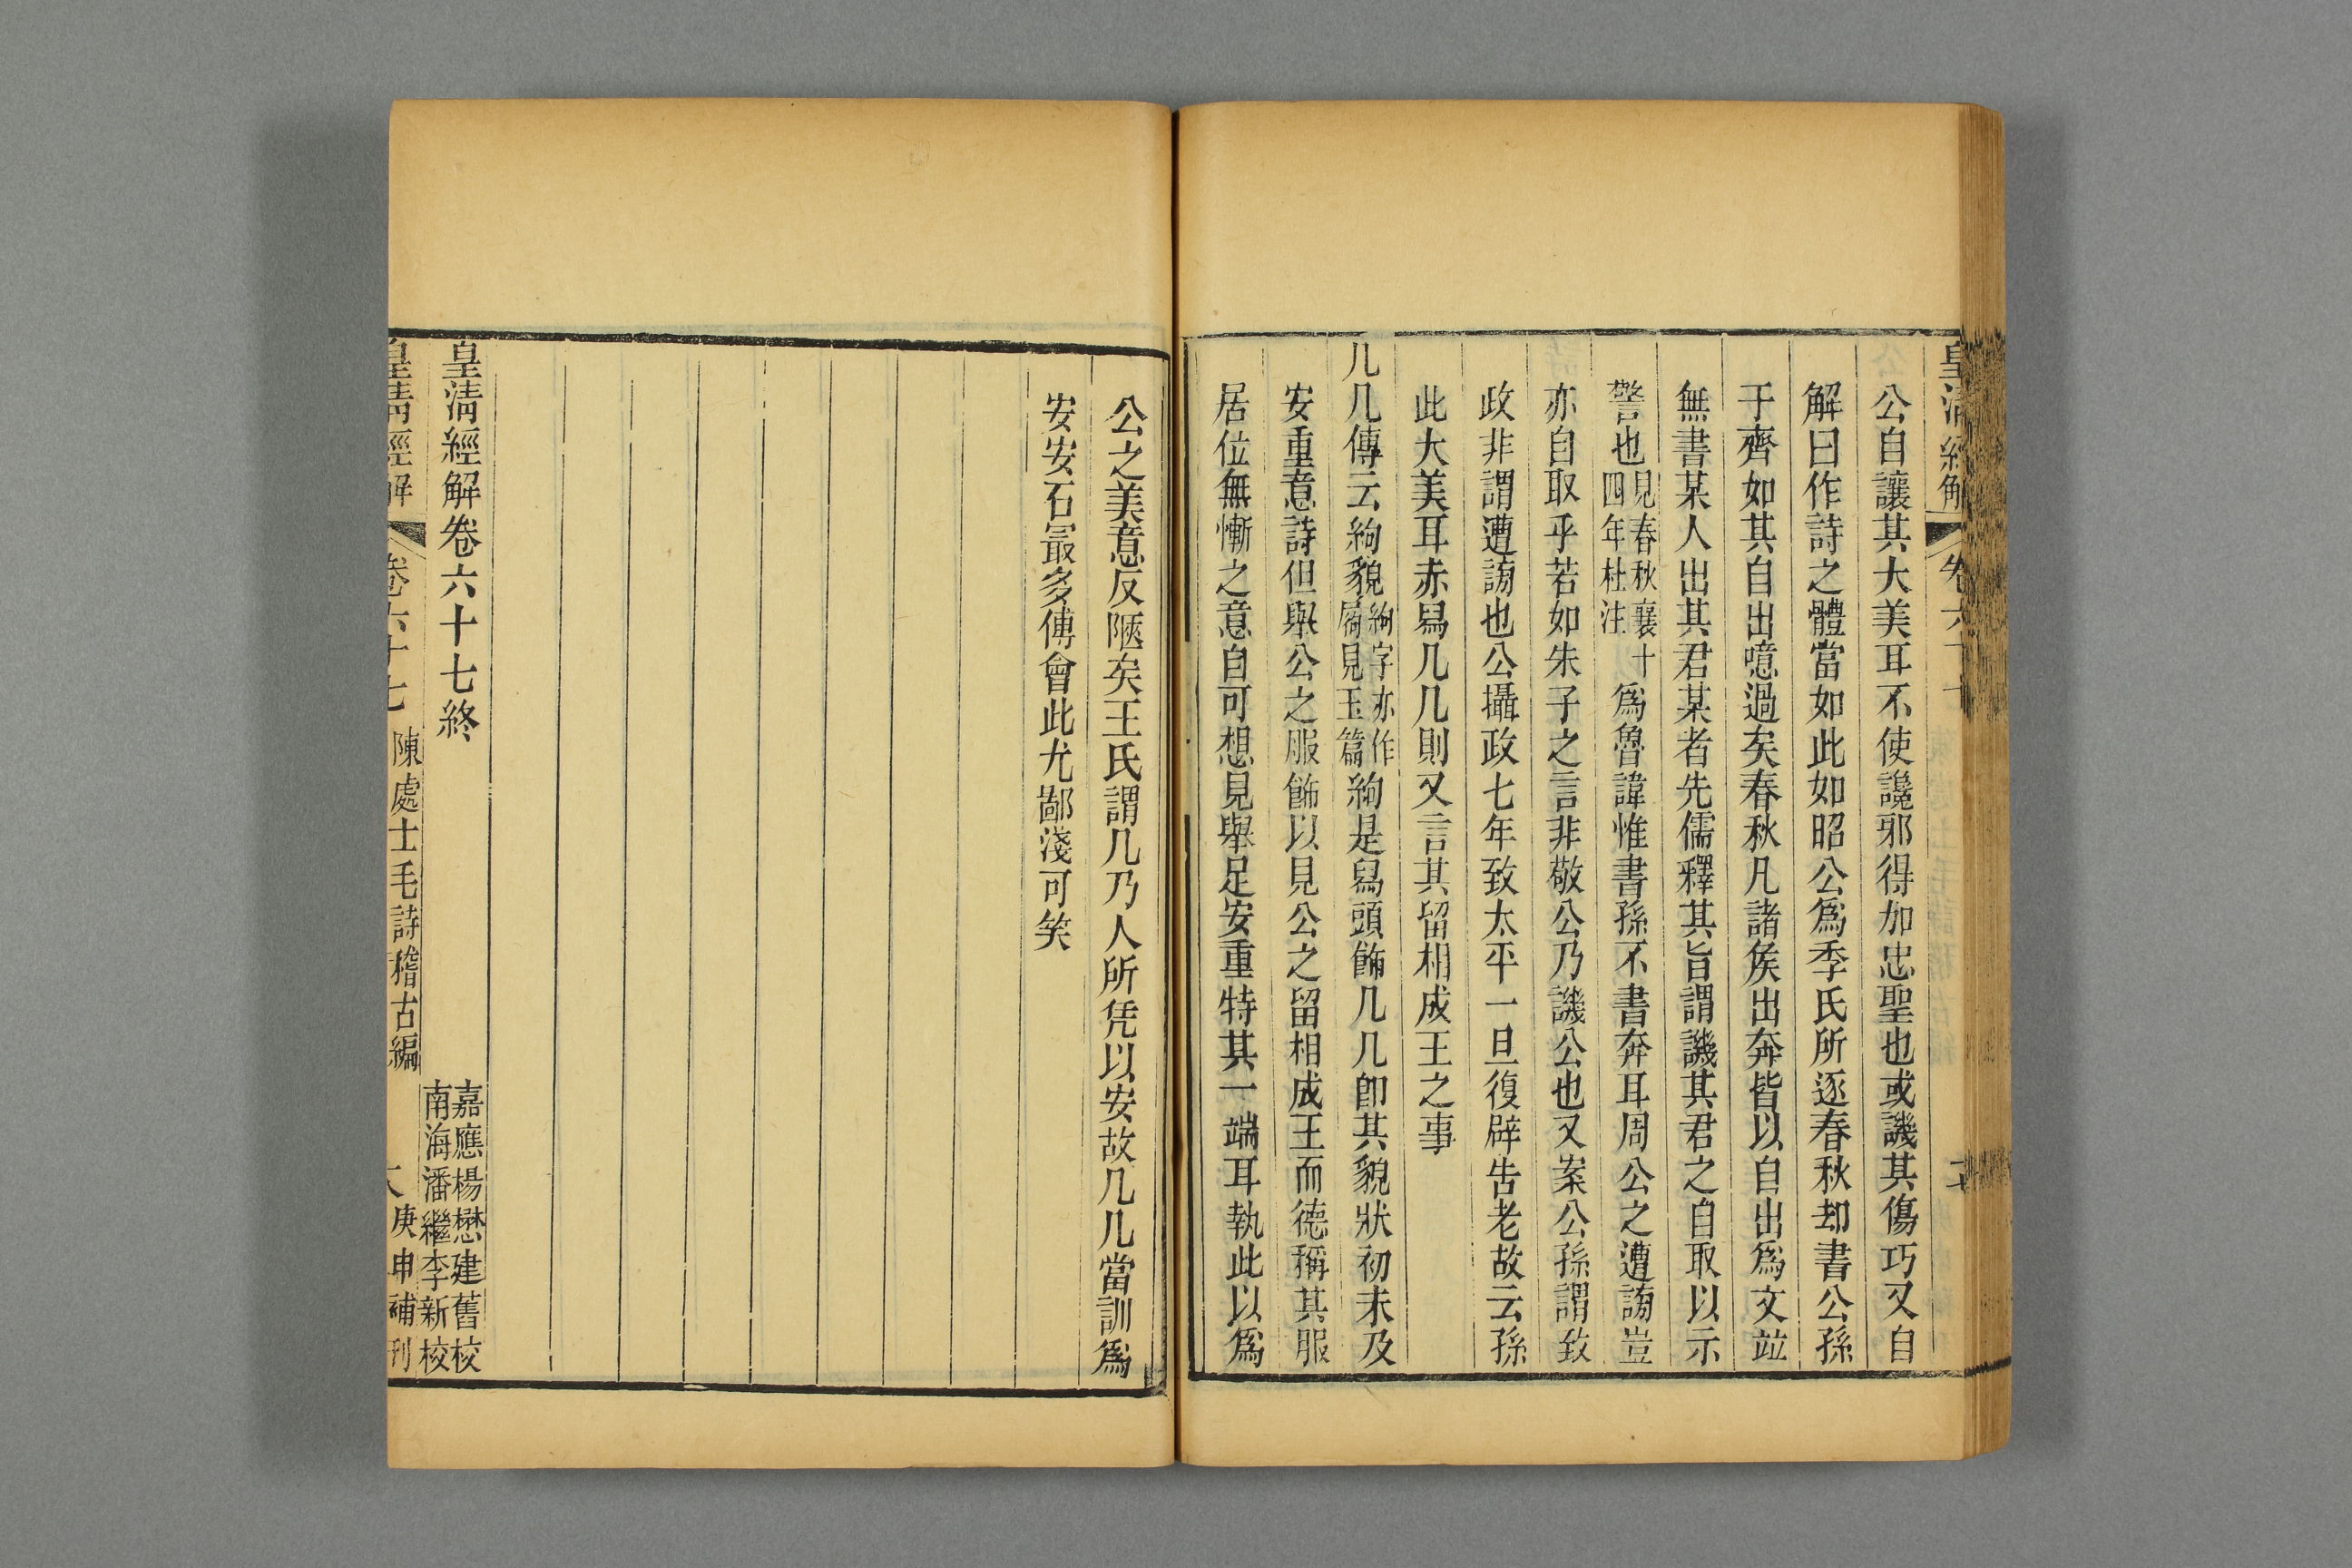 皇清經解 卷六十七
公自讓其大美耳不使讒邪得加忠聖也或譏其傷巧又自
解曰作詩之體當如此如昭公爲季氏所逐春秋却書公孫
于齊如其自出噫過矣春秋凡諸矦出奔皆以自出爲文竝
無書某人出其君某者先儒釋其旨謂譏其君之自取以示
警也見春秋襄十四年杜注爲魯諱惟書孫不書奔耳周公之遭謗豈
亦自取乎若如朱子之言非敬公乃譏公也又案公孫謂致
政非謂遭謗也公攝政七年致太平一旦復辟告老故云孫
此大美耳赤舄几几則又言其留相成王之事
几几傳云絇貌絇字亦作屩見玉篇絇是舄頭飾几几卽其貌狀初未及
安重意詩但舉公之服飾以見公之留相成王而德稱其服
居位無慚之意自可想見舉足安重特其一端耳執此以爲
公之美意反陋矣王氏謂几乃人所凭以安故几几當訓爲
安安石㝡多傅會此尤鄙淺可笑
皇清經解卷六十七終
嘉應楊懋建舊校
南海潘繼李新校
皇清經解 卷六十七 陳處士毛詩稽古編 庚申補刊